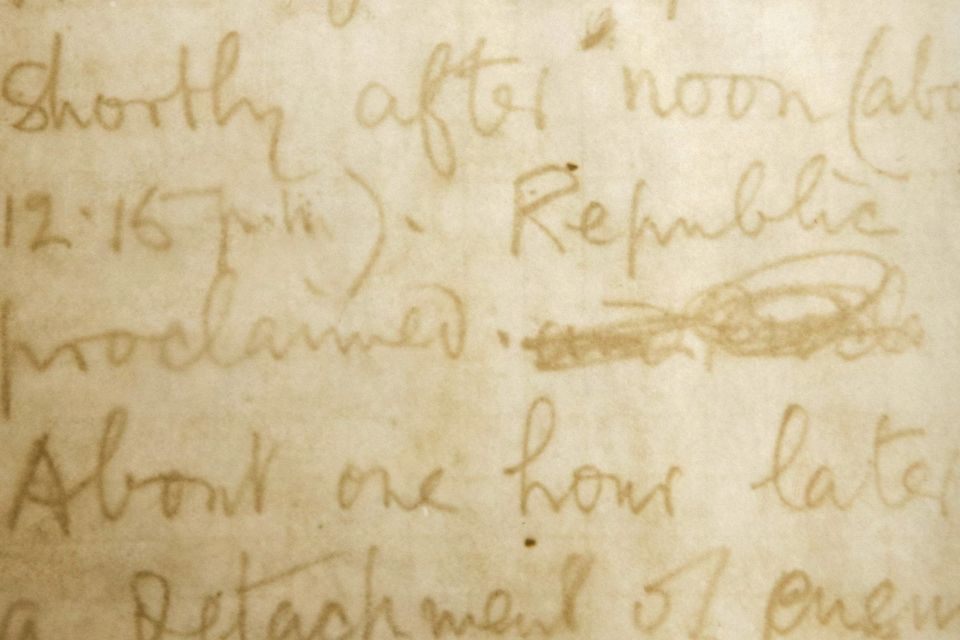 Shortly after noon (abo
12.15 p.m.). Republic
proclaimed.
About one hour later
a Detachment of enem